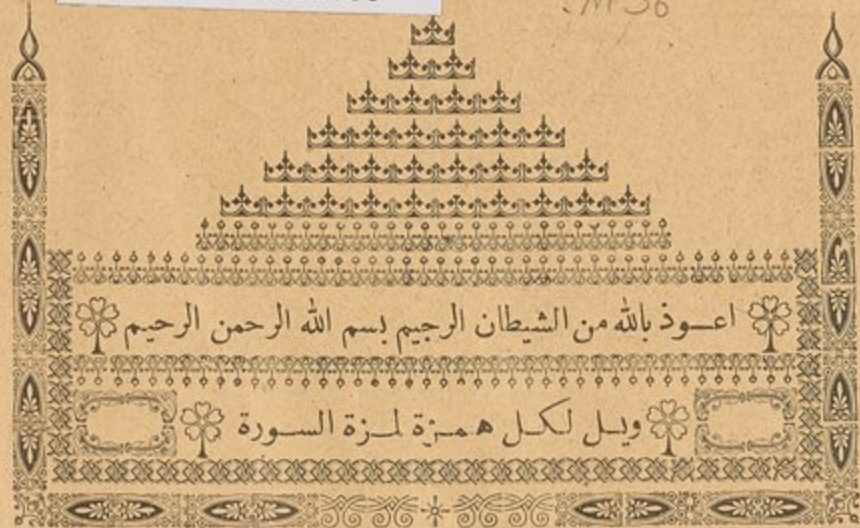 .M36
اعـوذ بالله من الشيطان الرجيم بسم الله الرحمن الرحيم
ويـل لكـل همـزة لمـزة السـورة